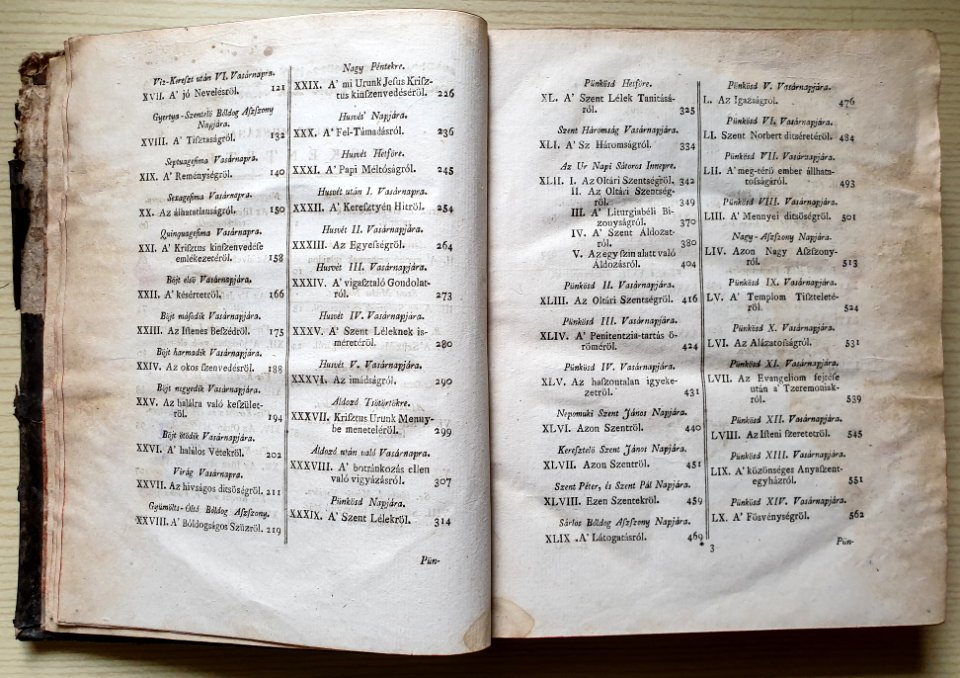 Víz-Kereszt után VI. Vasárnapra.
XVII. A' jó Nevelésröl. 121
Gyertya-Szentelö Bóldog Aſzſzony
Napjára.
XVIII. A' Tiſztaságról. 132
Septuageſima Vasárnapra.
XIX. A' Reménységröl. 140
Sexageſima Vasárnapra.
XX. Az álhatatlanságról. 150
Quinquageſima Vasárnapra.
XXI. A' Krisztus kinſzenvedése
emlékezetéröl. 158
Böjt elsö Vasárnapjára.
XXII. A' késértetröl. 166
Böjt második Vasárnapjára.
XXIII. Az Iſtenes Beſzédröl. 175
Böjt harmadik Vasárnapjára.
XXIV. Az okos ſzenvedésröl. 188
Böjt negyedik Vasárnapjára.
XXV. Az halálra való keſzület-
röl. 194
Böjt ötödik Vasárnapjára.
XXVI. A' halálos Vétekröl. 202
Virág Vasárnapra.
XXVII. Az hivságos ditsöségröl. 211
Gyümölts-Oltó Bóldog Aſzſzony.
XXVIII. A' Bóldogságos Szüzröl. 219
Nagy Péntekre.
XXIX. A' mi Urunk Jesus Krisz-
tus kinſzenvedéséröl. 226
Husvét Napjára.
XXX. A' Fel-Támadásról. 236
Husvét Hetföre.
XXXI. A' Papi Méltóságról. 245
Husvét után I. Vasárnapra.
XXXII. A' Keresztyén Hitröl. 254
Husvét II. Vasárnapjára.
XXXIII. Az Egyeſségröl. 264
Husvét III. Vasárnapjára.
XXXIV. A' vigasztaló Gondolat-
ról. 273
Husvét IV. Vasárnapjára.
XXXV. A' Szent Léleknek is-
méretéröl. 280
Husvét V. Vasárnapjára.
XXXVI. Az imádságról. 290
Áldozó Tsötörtökre.
XXXVII. Krisztus Urunk Menny-
be meneteléröl. 299
Áldozó után való Vasárnapra.
XXXVIII. A' botránkozás ellen
való vigyázásról. 307
Pünkösd Napjára.
XXXIX. A' Szent Lélekröl. 314
Pün-
Pünkösd Hetföre.
XL. A' Szent Lélek Tanitásá-
ról. 325
Szent Háromság Vasárnapjára.
XLI. A' Sz Háromságról. 334
Az Ur Napi Sátoros Innepre.
XLII. I. Az Oltári Szentségröl. 342
II. Az Oltári Szentség-
röl. 349
III. A' Liturgiabéli Bi-
zonyságról. 370
IV. A' Szent Áldozat-
ról. 380
V. Az egy szin alatt való
Áldozásról. 404
Pünkösd II. Vasárnapjára.
XLIII. Az Oltári Szentségröl. 416
Pünkösd III. Vasárnapjára.
XLIV. A' Penitentzia-tartás ö-
röméröl. 424
Pünkösd IV. Vasárnapjára.
XLV. Az haſzontalan igyeke-
zetröl. 431
Nepomuki Szent János Napjára.
XLVI. Azon Szentröl. 440
Keresztelö Szent János Napjára.
XLVII. Azon Szentröl. 451
Szent Péter, és Szent Pál Napjára.
XLVIII. Ezen Szentekröl. 459
Sárlos Bóldog Aſzſzony Napjára.
XLIX. A' Látogatásról. 469
3
Pünkösd V. Vasárnapjára.
L. Az Igazságról. 476
Pünkösd VI. Vasárnapjára.
LI. Szent Norbert ditséretéröl. 484
Pünkösd VII. Vasárnapjára.
LII. A' meg-térö ember álhata-
tosságáról. 493
Pünkösd VIII. Vasárnapjára.
LIII. A' Mennyei ditsöségröl. 501
Nagy-Aſzſzony Napjára.
LIV. Azon Nagy Aſzſzony-
ról. 513
Pünkösd IX. Vasárnapjára.
LV. A' Templom Tiſzteleté-
röl. 524
Pünkösd X. Vasárnapjára.
LVI. Az Alázatoſságról. 531
Pünkösd XI. Vasárnapjára.
LVII. Az Evangeliom fejtése
után a' Tzeremoniák-
ról. 539
Pünkösd XII. Vasárnapjára.
LVIII. Az Iſteni ſzeretetröl. 545
Pünkösd XIII. Vasárnapjára.
LIX. A' közönséges Anyaſzent-
egyházról. 551
Pünkösd XIV. Vasárnapjára.
LX. A' Fösvénységröl. 562
Pün-